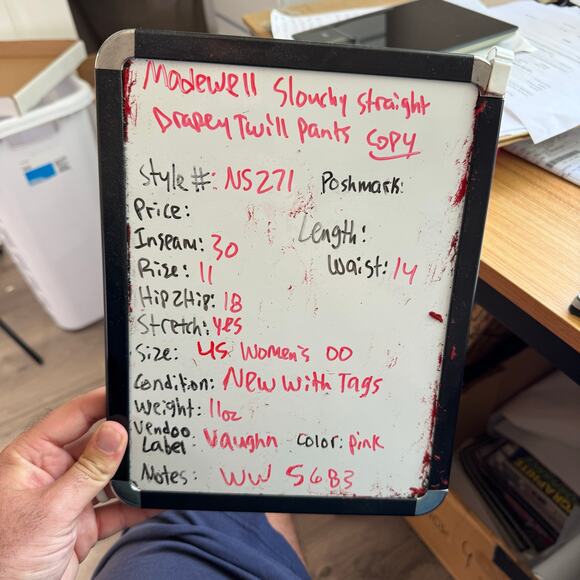 Madewell Slouchy Straight
Drapey Twill Pants COPY
Style #: NS271 Poshmark:
Price:
Length:
Inseam: 30
Waist: 14
Rise: 11
Hip2Hip: 18
Stretch: yes
Size: US Women's 00
Condition: New With Tags
Weight: 11oz
Vendoo
Label: Vaughn Color: Pink
Notes: WW 5683